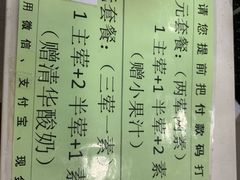 请您提前把付款码打
元套餐：（两荤两素）
1 主荤+1 半荤+2 素
（赠小果汁）
元套餐：（三荤 素）
1 主荤+2 半荤+1 素
（赠清华酸奶）
用微信、支付宝、现金